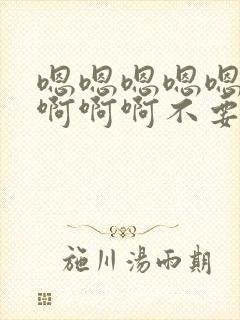 嗯嗯嗯嗯嗯
啊啊啊不要
施川湯雨期